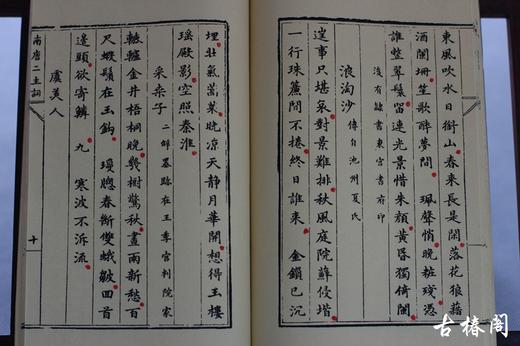 東風吹水日銜山春來長是閑落花狼藉
酒闌珊笙歌醉夢間 珮聲悄晚粧殘憑
誰整翠鬟留連光景惜朱顔黄昏獨倚闌
後有隸書東宮書府印
浪淘沙 傳自池州夏氏
徃事只堪哀對景難排秋風庭院蘚侵堦
一行珠簾閒不捲終日誰來 金鎖已沉
埋壯氣蒿萊晚凉天静月華開想得玉樓
瑶殿影空照秦淮
采桒子 二詞墨跡在王季宮判院家
轆轤金井梧桐晚幾樹驚秋晝雨新愁百
尺蝦鬚在玉鈎 瓊牕春斷雙蛾皺回首
邊頭欲寄鱗 九 寒波不泝流
虞美人
南唐二主詞 十
古椿阁